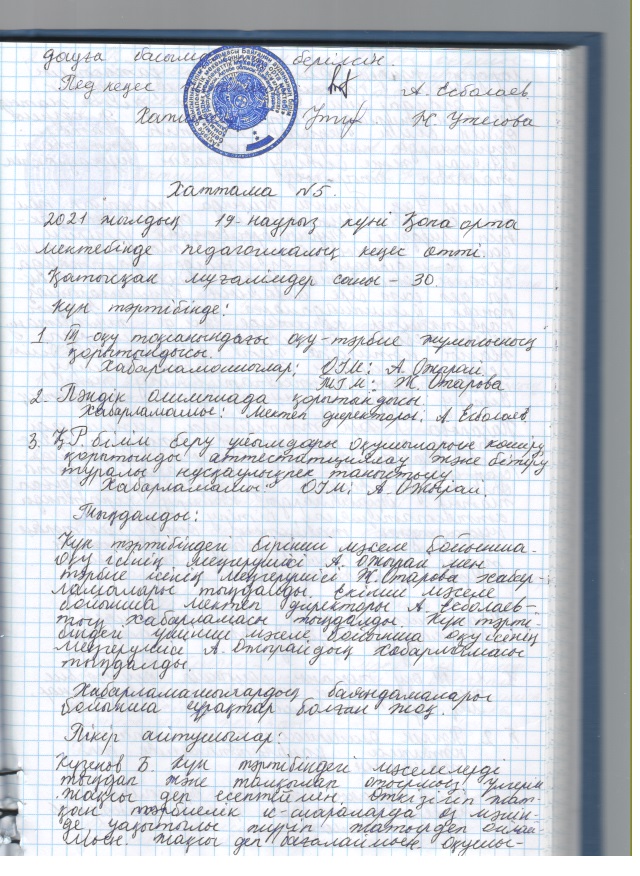 дауға бағыт берілсін.
Пед кеңес А. Есболаев
Хатшы Н. Утегова
Хаттама №5.
2021 жылдың 19-наурыз күні Қоға орта
мектебінде педагогикалық кеңес өтті.
Қатысқан мұғалімдер саны - 30.
Күн тәртібінде:
1. III-оқу тоқсанындағы оқу-тәрбие жұмысының
қорытындысы.
Хабарламашылар: ОІМ: А. Ожырай
ТІМ: Ж. Отарова
2. Пәндік олимпиада қорытындысы.
Хабарламашы: мектеп директоры, А. Есболаев
3. ҚР білім беру ұйымдары оқушыларын көшіру,
қорытынды аттестатциялау және бітіру
туралы нұсқаулықпен таныстыру.
Хабарламашы: ОІМ: А. Ожырай.
Тыңдалды:
Күн тәртібіндегі бірінші мәселе бойынша
оқу ісінің меңгерушісі А. Ожырай мен
тәрбие ісінің меңгерушісі Ж. Отарова хабар-
ламалары тыңдалды. Екінші мәселе
бойынша мектеп директоры А. Есболаев-
тың хабарламасы тыңдалды. Күн тәрті-
біндегі үшінші мәселе бойынша оқу ісінің
меңгерушісі А. Ожырайдың хабарламасы
тыңдалды.
Хабарламашылардың баяндамалары
бойынша сұрақтар болған жоқ.
Пікір айтушылар:
Күзенов Б. Күн тәртібіндегі мәселелерді
тыңдап және талқылап отырмыз. Үлгерім
жақсы деп есептеймін. Өткізіліп жат-
қан тәрбиелік іс-шараларда өз мәнін-
де уақытылы жүріп жатыр деп ойлай-
мын. Жақсы деп бағалаймын. Оқушы-